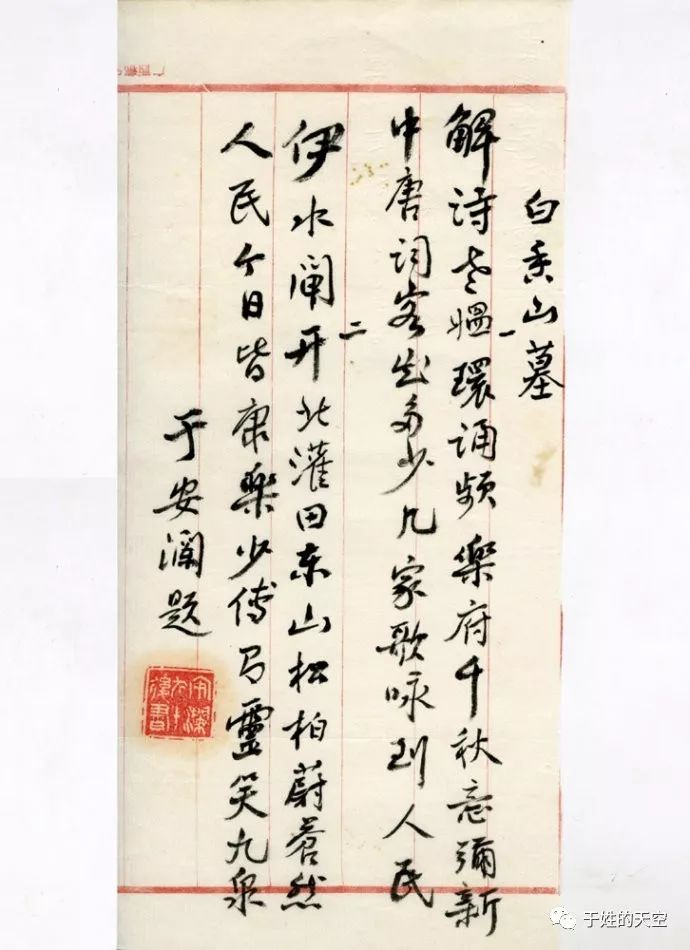 白香山墓
一
解诗老媪環诵频樂府千秋意彌新
中唐词客知多少几家歌咏到人民
二
伊水闸开北灌田东山松柏蔚苍然
人民今日皆康樂少傅有靈笑九泉
于安澜题
于姓的天空